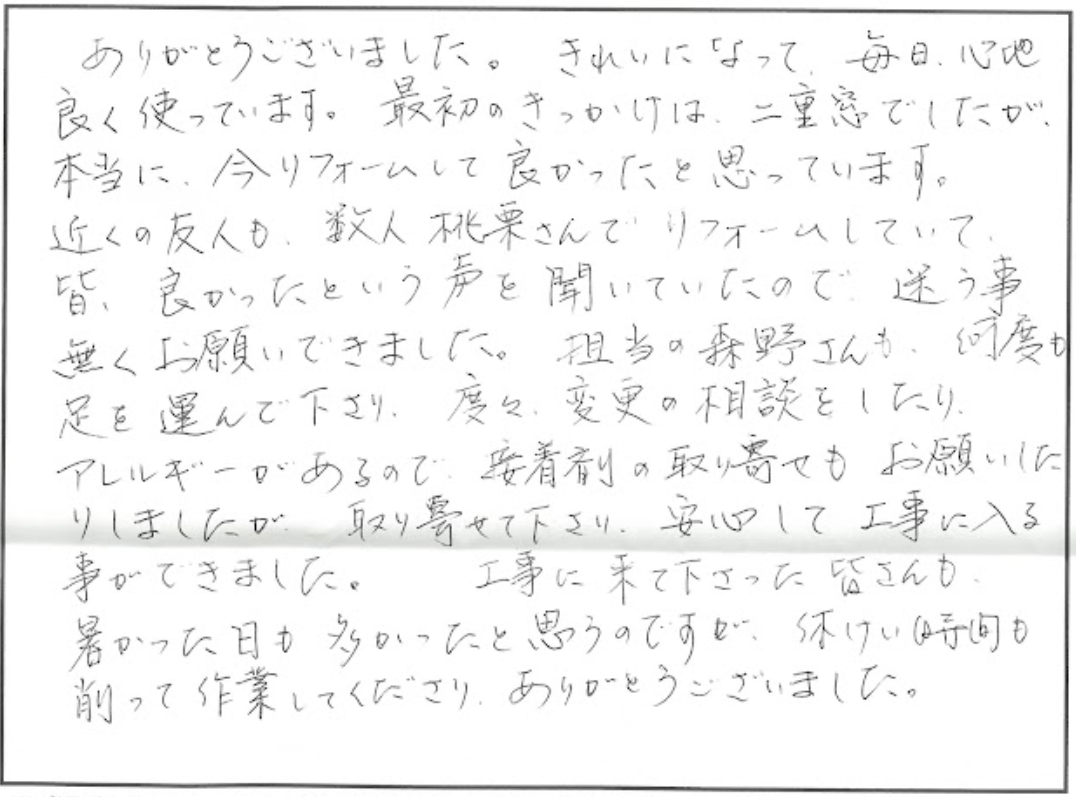 ありがとうございました。 きれいになって、毎日、心地
良く使っています。 最初のきっかけは、二重窓でしたが、
本当に、今リフォームして良かったと思っています。
近くの友人も、数人 桃栗さんでリフォームしていて、
皆、良かったという声を聞いていたので、迷う事
無くお願いできました。 担当の森野さんも、何度も
足を運んで下さり、 度々、変更の相談をしたり、
アレルギーがあるので、接着剤の取り寄せもお願いした
りしましたが、 取り寄せて下さり、安心して工事に入る
事ができました。 工事に来て下さった皆さんも、
暑かった日も多かったと思うのですが、休けい時間も
削って作業してくださり、ありがとうございました。